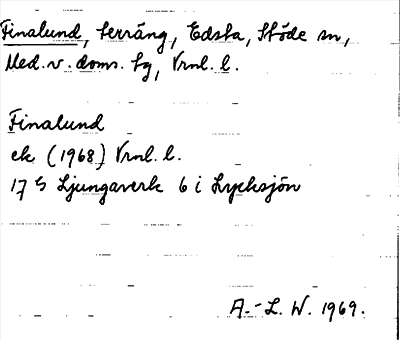 Finalund, terräng, Edsta, Stöde sn,
Med. v. doms. hg, Vrnl. l.
Finalund
ek (1968) Vrnl. l.
17 G Ljungaverk 6 i Lycksjön
A.-L. W. 1969.